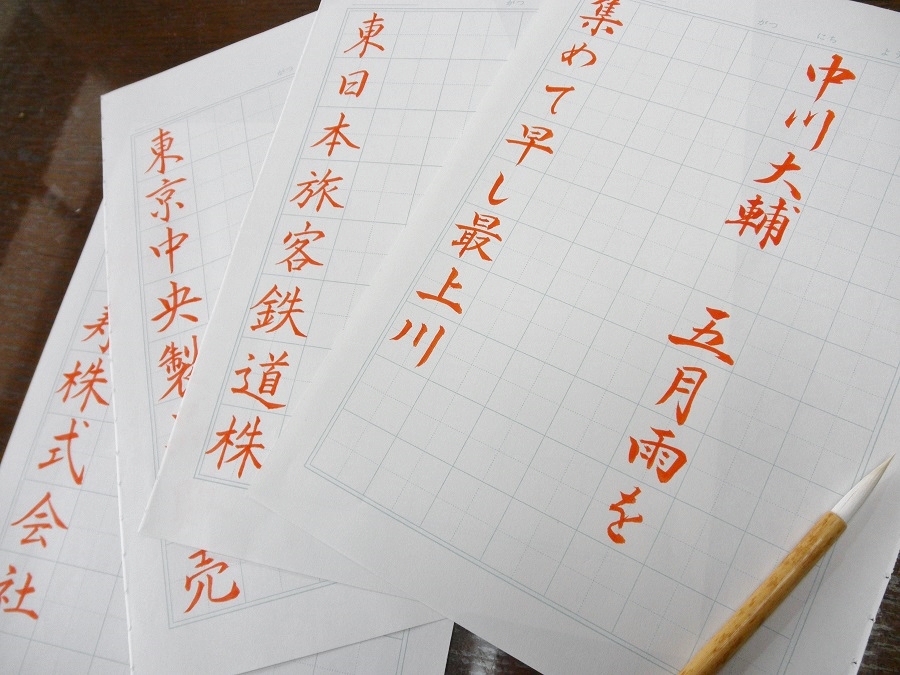 がつ にち よう
中川大輔
五月雨を
集めて早し最上川
がつ
東日本旅客鉄道株
がつ
東京中央製
売
株式会社